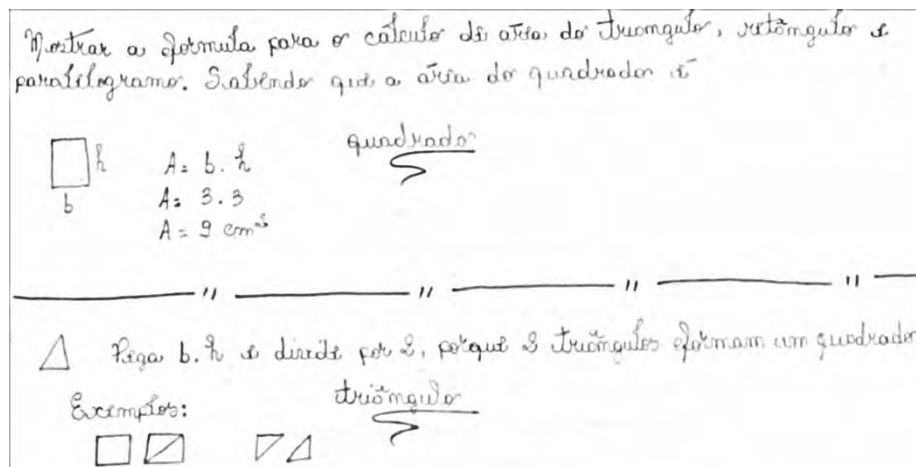 Mostrar a formula para o cálculo de área do triângulo, retângulo e
paralelogramo. Sabendo que a área do quadrado é
quadrado
h
b
A = b . h
A = 3 . 3
A = 9 cm²
Pega b . h e divide por 2, porque 2 triângulos formam um quadrado
triângulo
Exemplos: